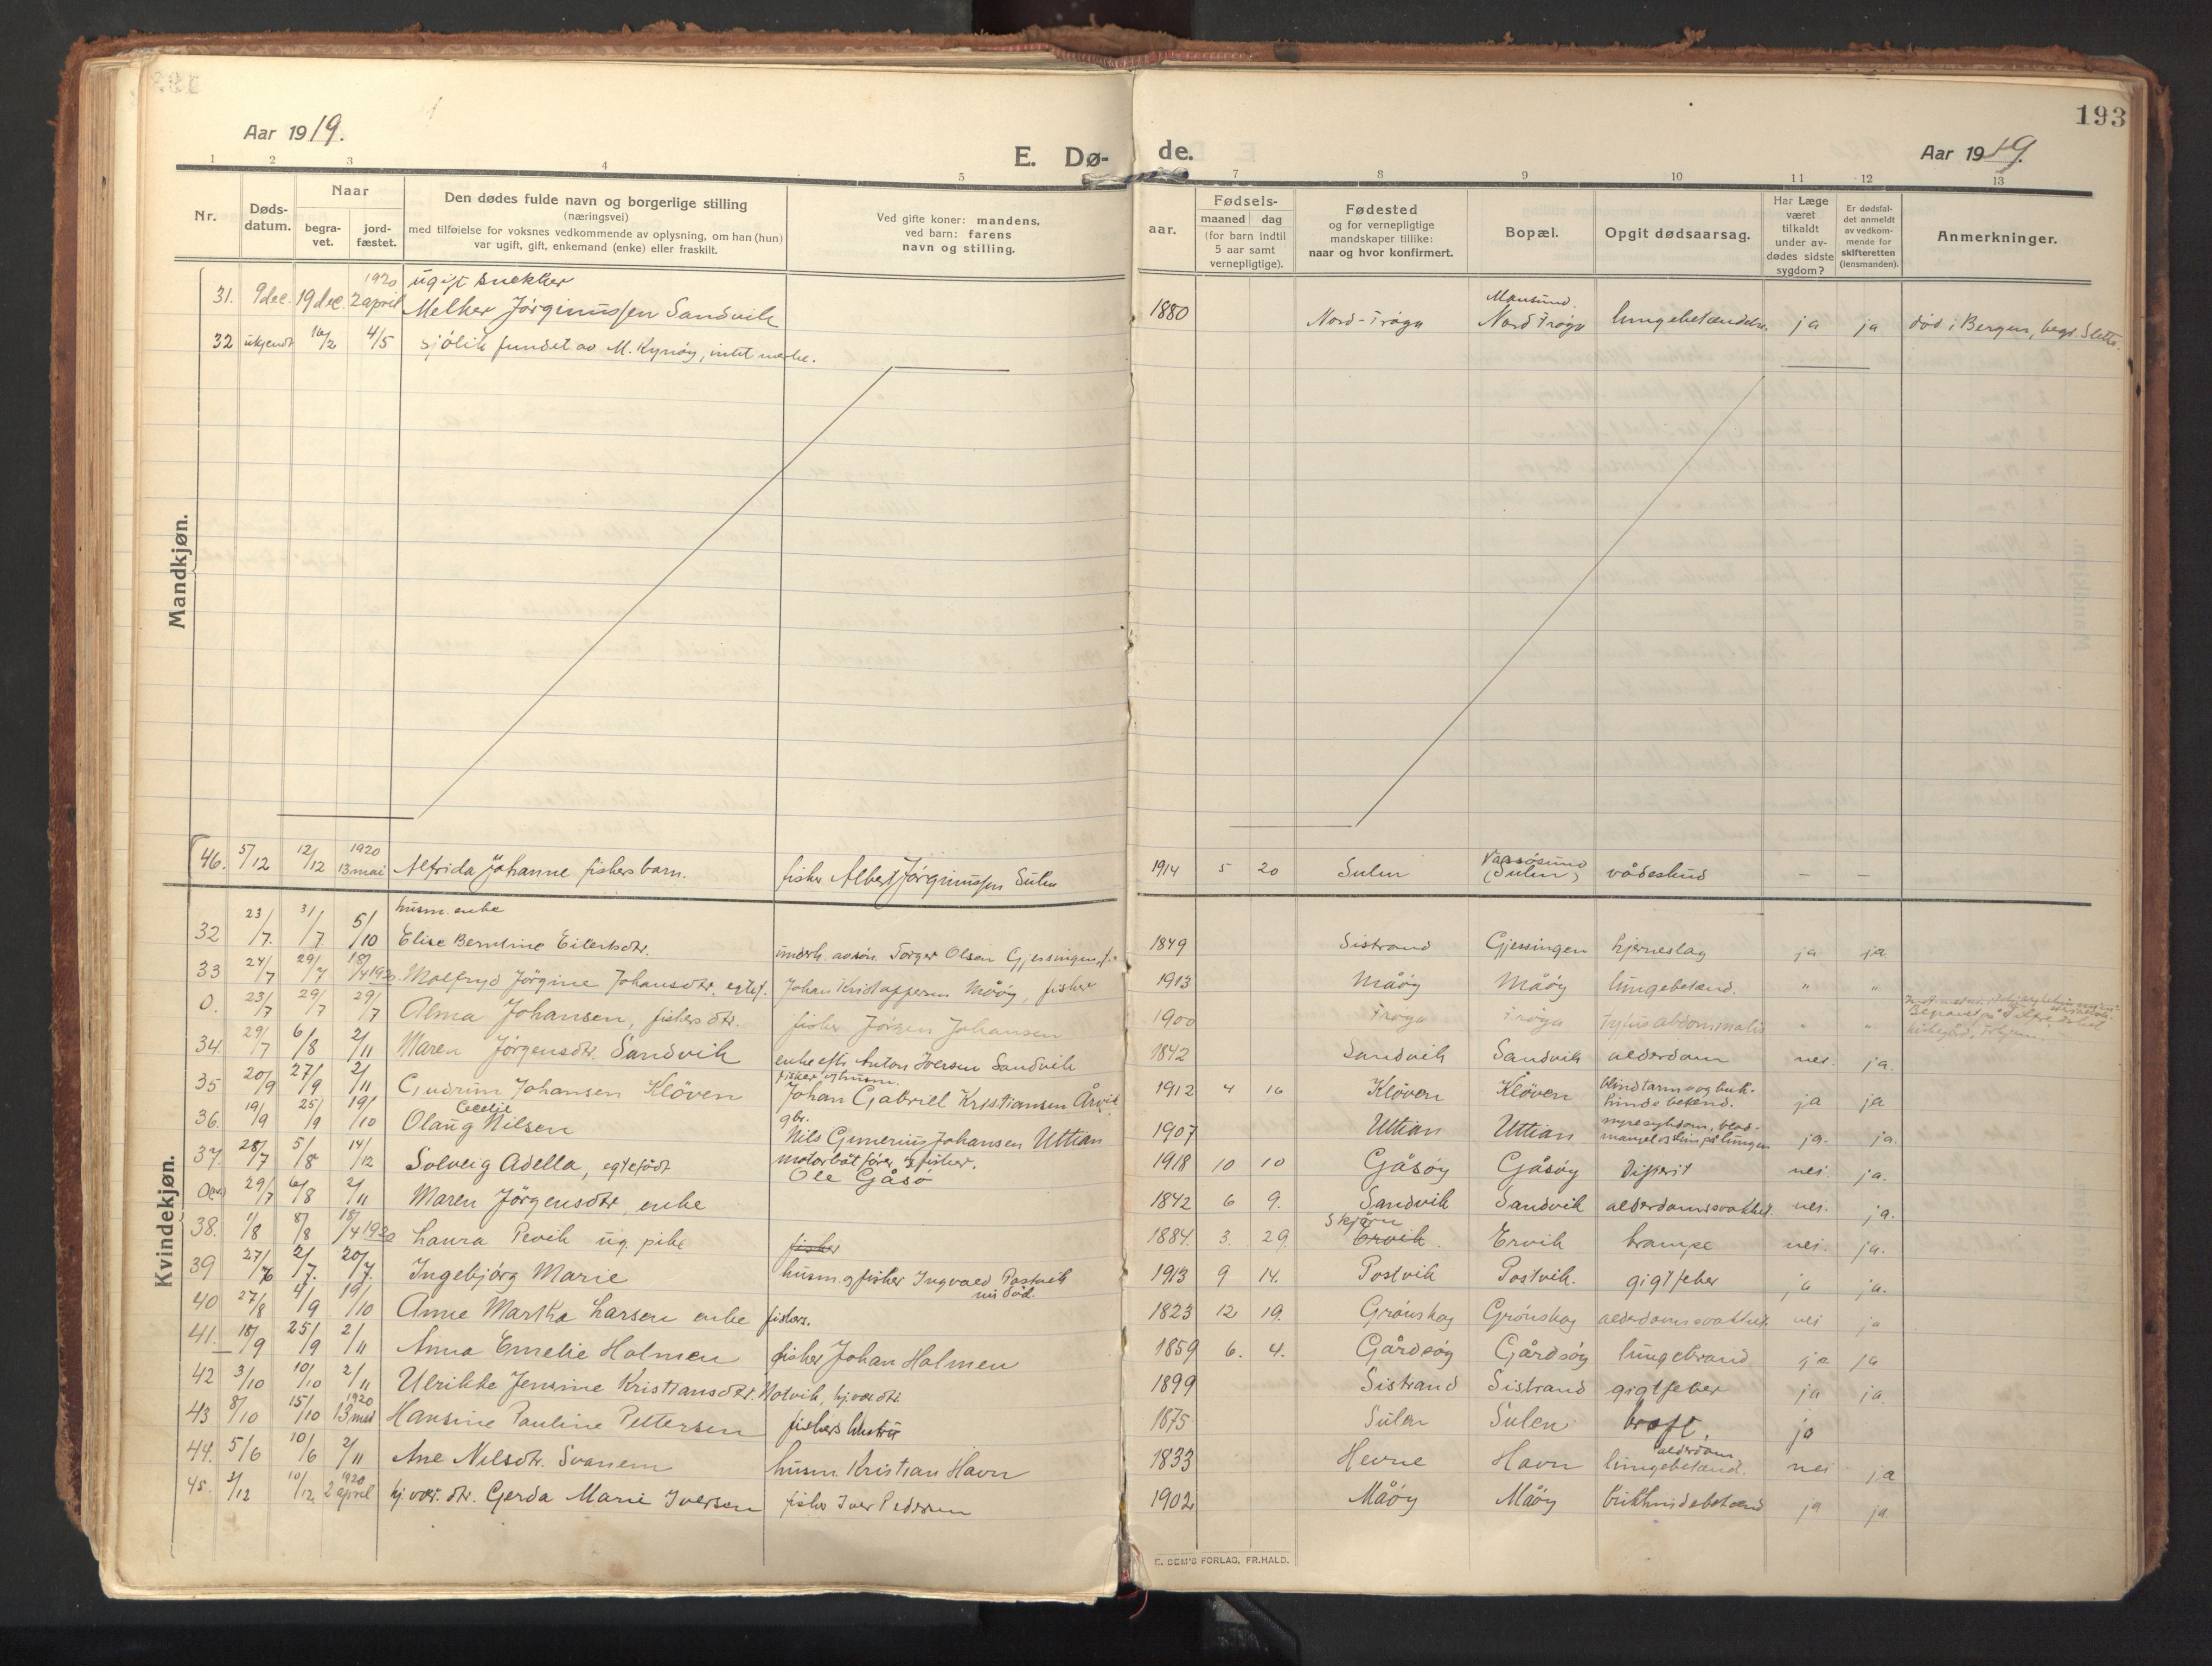 193
Aar 1919.
E. Dø-
de.
Aar 1919.
1 2 3 4 5 7 8 9 10 11 12 13
Nr.
Døds-
datum.
Naar
begra-
vet.
jord-
fæstet.
Den dødes fulde navn og borgerlige stilling
(næringsvei)
med tilføielse for voksnes vedkommende av oplysning, om han (hun)
var ugift, gift, enkemand (enke) eller fraskilt.
Ved gifte koner: mandens,
ved barn: farens
navn og stilling.
Fødsels-
aar.
maaned dag
(for barn indtil
5 aar samt
vernepligtige).
Fødested
og for vernepligtige
mandskaper tillike:
naar og hvor konfirmert.
Bopæl.
Opgit dødsaarsag.
Har Læge
været
tilkaldt
under av-
dødes sidste
sygdom?
Er dødsfal-
det anmeldt
av vedkom-
mende for
skifteretten
(lensmanden).
Anmerkninger.
Mandkjøn.
1920 ugift snekker Mausund.
31. 9 dec. 19 dec. 2 april Melker Jørginussen Sandvik 1880 Nord-Frøya Nord Frøya lungebetændelse ja ja død i Bergen, begr. Sletta.
32 ukjendt 16/2 4/5 sjølik fundet av M. Kynøy, intet merke.
1920 Vassøsund
46. 5/12 12/12 13 mai Alfrida Johanne fiskers barn. fisker Albert Jørginussen Sulen 1914 5 20 Sulen (Sulen) vådeskud — —
Kvindekjøn.
husm. enke
32 23/7. 31/7 5/10 Elise Berntine Eilertsdtr. underh. av søn. Torger Olsen Gjessingen 1849 Sistrand Gjessingen hjerneslag ja ja
33 24/7 29/7 18/4 1920 Malfryd Jörgine Johansdtr. egtef. Johan Kristoffersen Måöy, fisker 1913 Måöy Måöy lungebetænd. " "
0. 23/7 29/7 29/7 Alma Johansen, fiskers dtr. fisker Jörgen Johansen 1900 Frøya Frøya tyfus abdominalis " "
Begravet på
34. 29/7 6/8 2/11 Maren Jörgensdtr. Sandvik enke efts Anton Iversen Sandvik 1842 Sandvik Sandvik alderdom nei. ja.
fisker og husm.
35 20/9 27/9 2/11 Gudrun Johansen Klöven Johan Gabriel Kristiansen Årvik 1912 4 16 Klöven Klöven blindtarms og buk-
hinde betænd. ja ja
Cecelie gbr.
36. 19/9 25/9 19/10 Olaug Nilsen Nils Gunerius Johansen Uttian 1907 Uttian Uttian nyresykdom, blod-
mangel og lungen ja. ja.
motorbåt fører og fisker.
37. 28/7 5/8 14/12 Solveig Adella, egtefödt Ole Gåsö 1918 10 10 Gåsöy Gåsöy Difterit nei ja.
29/7 6/8 2/11 Maren Jörgensdtr, enke 1842 6 9. Sandvik Sandvik alderdomssvakhet nei. ja.
Skjörn
38. 1/8 8/8 18/4 1920 Laura Revik ug. pike fisker 1884. 3. 29. Ervik Ervik krampe nei. ja.
39 27/6 2/7. 20/7. Ingebjörg Marie husm. og fisker Ingvald Postvik 1913 9 14. Postvik Postvik. gigtfeber ja ja.
40 27/8 4/9 19/10 Anne Martha Larsen enke fiskers. 1823 12 19. Grönskag Grönskag alderdomssvakhet nei ja
41. 18/9 25/9 2/11 Anna Emelie Holmen fisker Johan Holmen 1859 6. 4. Gårdsöy Gårdsöy lungebrand ja ja
42 3/10 10/10 2/11 Ulrikke Jensine Kristiansdtr. Hotvik, hj.vær. dtr. 1899 Sistrand Sistrand gigtfeber ja ja.
1920
43 8/10 15/10 13 mai Hansine Pauline Pettersen fiskers hustru 1875 Sulen Sulen kræft, ja
44. 5/6 10/6 2/11 Ane Nilsdtr. Svanem husm. Kristian Havn 1833 Hevne Havn alderdom
lungebetænd. nei ja
1920
45. 3/12 10/12 2 april hj. vær. dtr. Gerda Marie Iversen fisker Iver Pedersen 1902 Måöy Måöy bukhindebetænd ja ja
E. SEM'S FORLAG, FR.HALD.